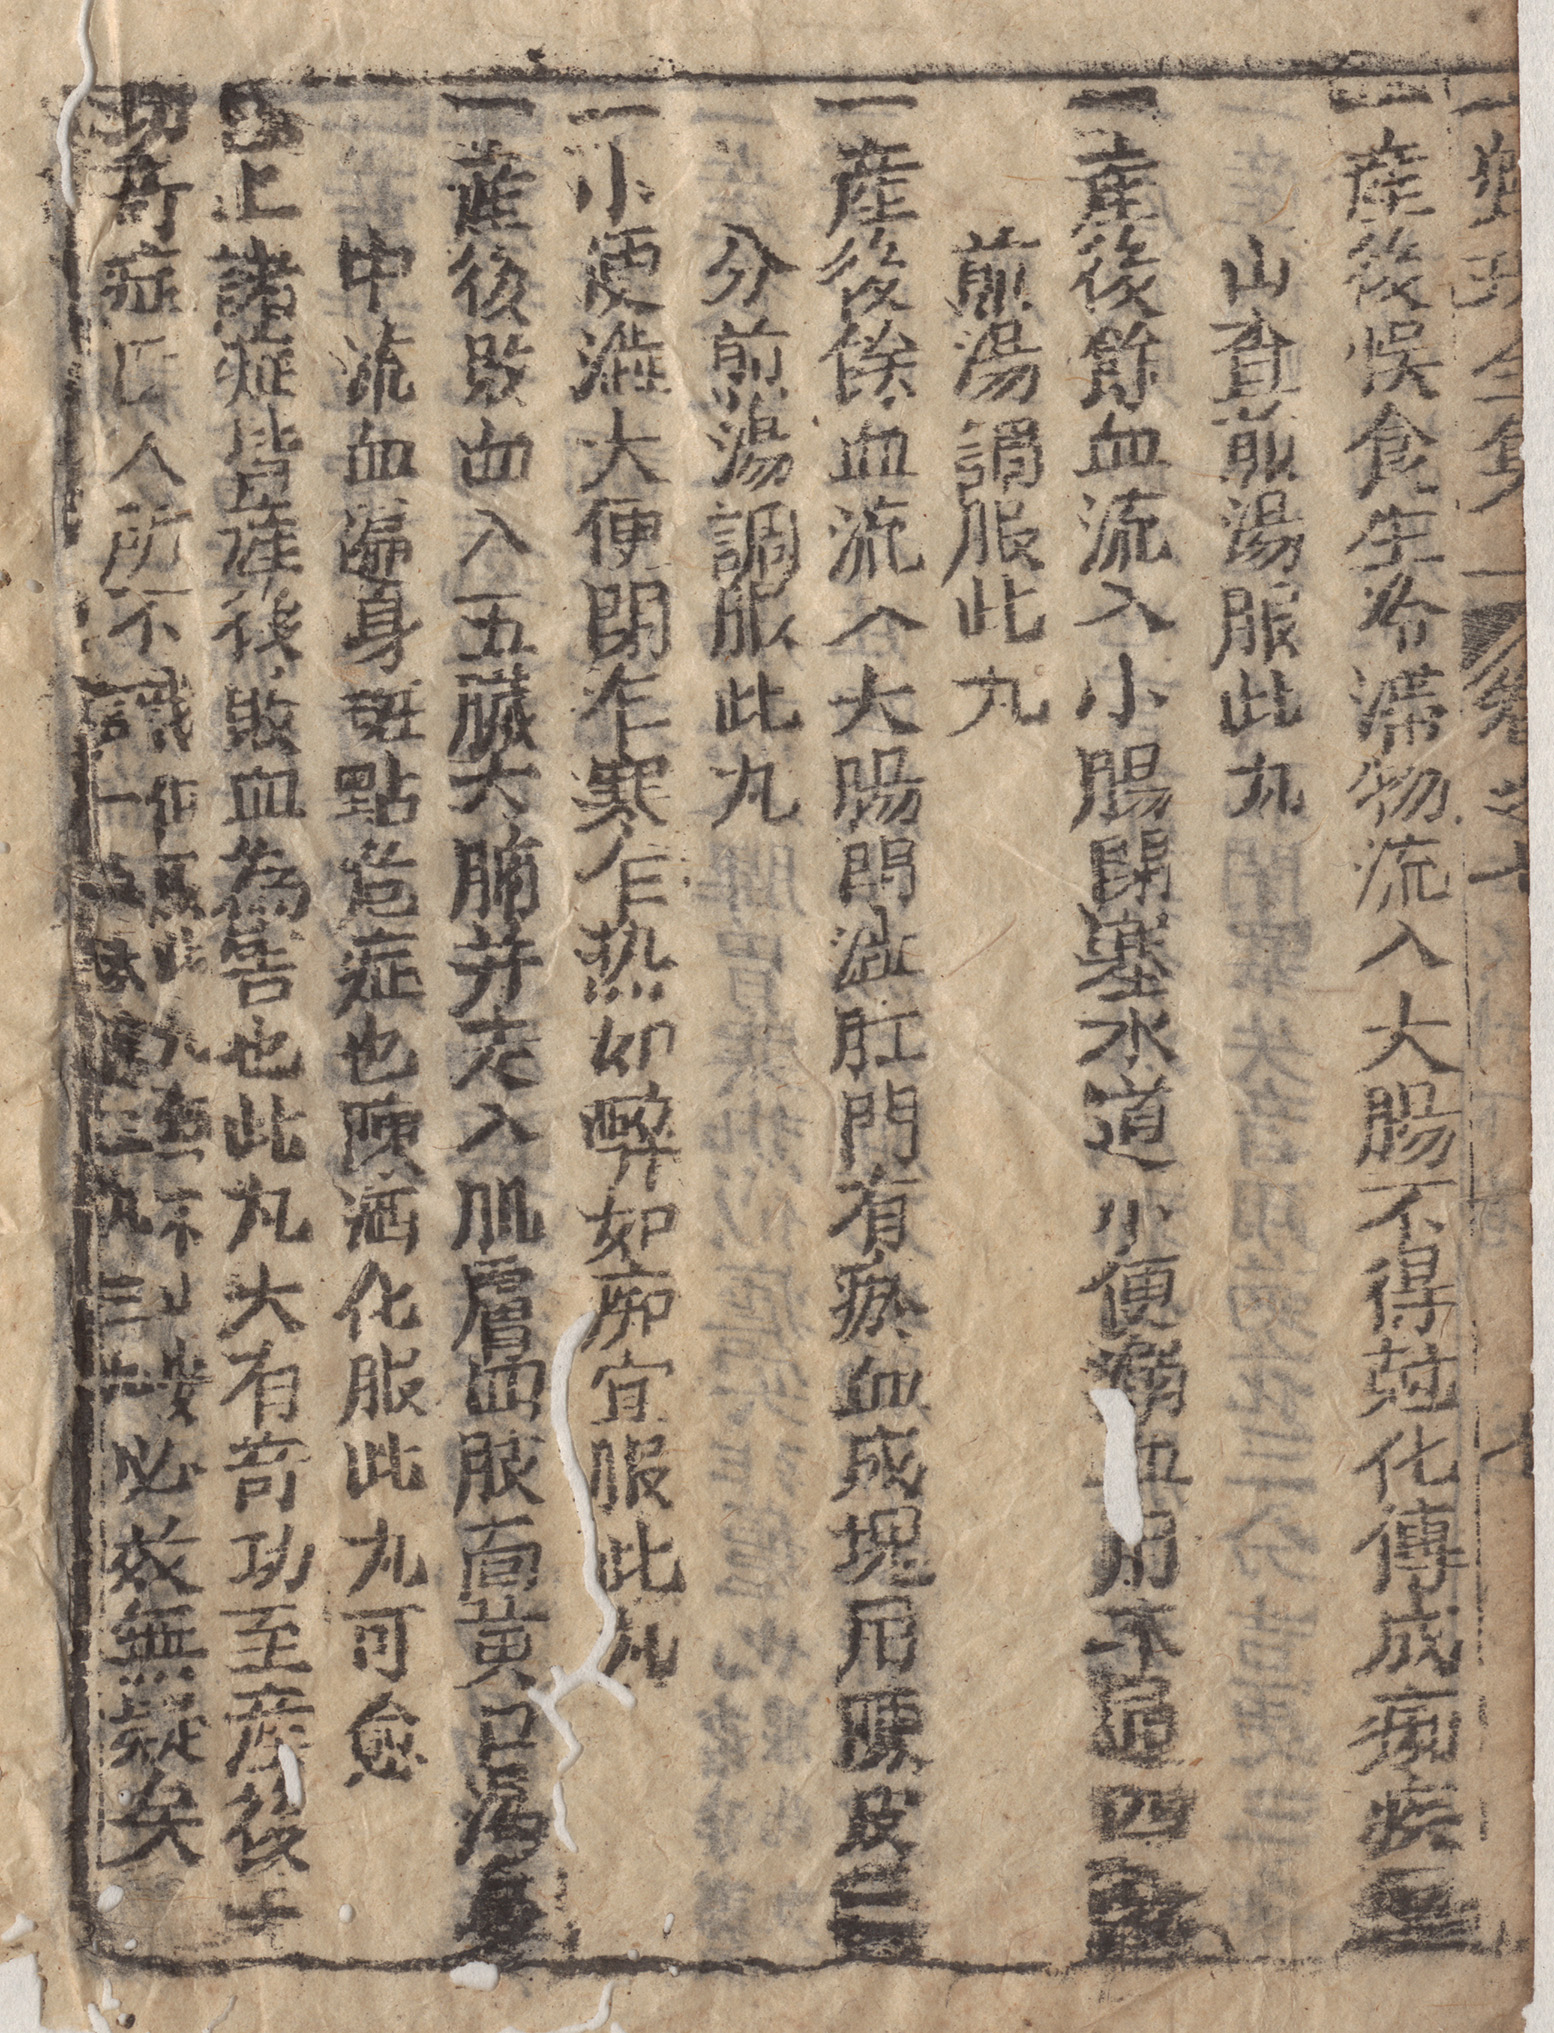 一産後悞食生冷滯物流入大腸不得尅化傳成痢疾
山查煎湯服此丸
一産後餘血流入小腸閉塞水道小便澁血用木通四
煎湯調服此丸
一産後餘血流入大腸閉澁肛門有瘀血成塊用陳皮三
分煎湯調服此丸
一小便澁大便閉乍寒乍热如醉如痴宜服此丸
一産後敗血入五臟六腑并走入肌膚四肢面黄口渴鼻
中流血遍身斑點危症也陳酒化服此丸可愈
以上諸症皆産後敗血為害也此丸大有竒功至産後十
功竒症 人所不識 必效無疑矣